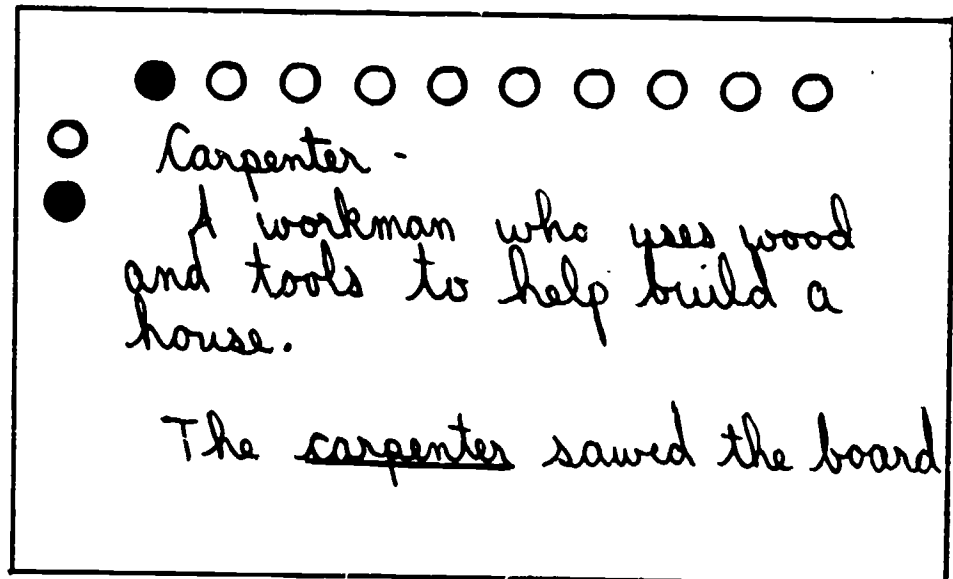 Carpenter -
A workman who uses wood
and tools to help build a
house.
The carpenter sawed the board